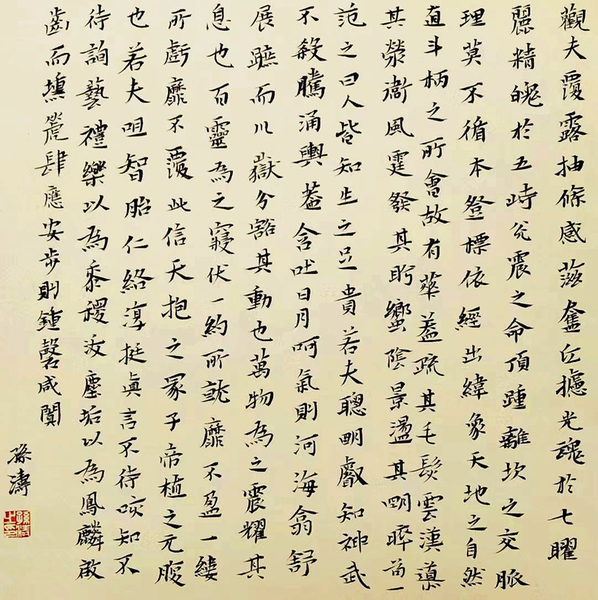 觀夫覆露抽條感蕩盧丘攄光魂於七曜
麗精魄於五時兊震之命頂踵離坎之交脈
理莫不循本登標依經出緯象天地之自然
直斗柄之所會故有華蓋疏其毛髮雲漢導
其滎衛風霆發其肹蠁陰景盪其明晬首一
范之曰人皆知之貴若夫聰明叡知神武
不殺騰涌輿蓋含吐日月呵氣則河海翕舒
展蹠而川嶽分豁其動也萬物為之震耀其
息也百靈為之寢伏一約所毓靡不盈一縷
所虧靡不覆此信天抱之冢子帝植之元腹
也若夫咀智胎仁絡淳挺真言不待咳知不
待詢藝禮樂以為黍稷汝塵垢以為鳳麟啟
齒而壎篪肆應安步則鍾磬咸闐
孫濤